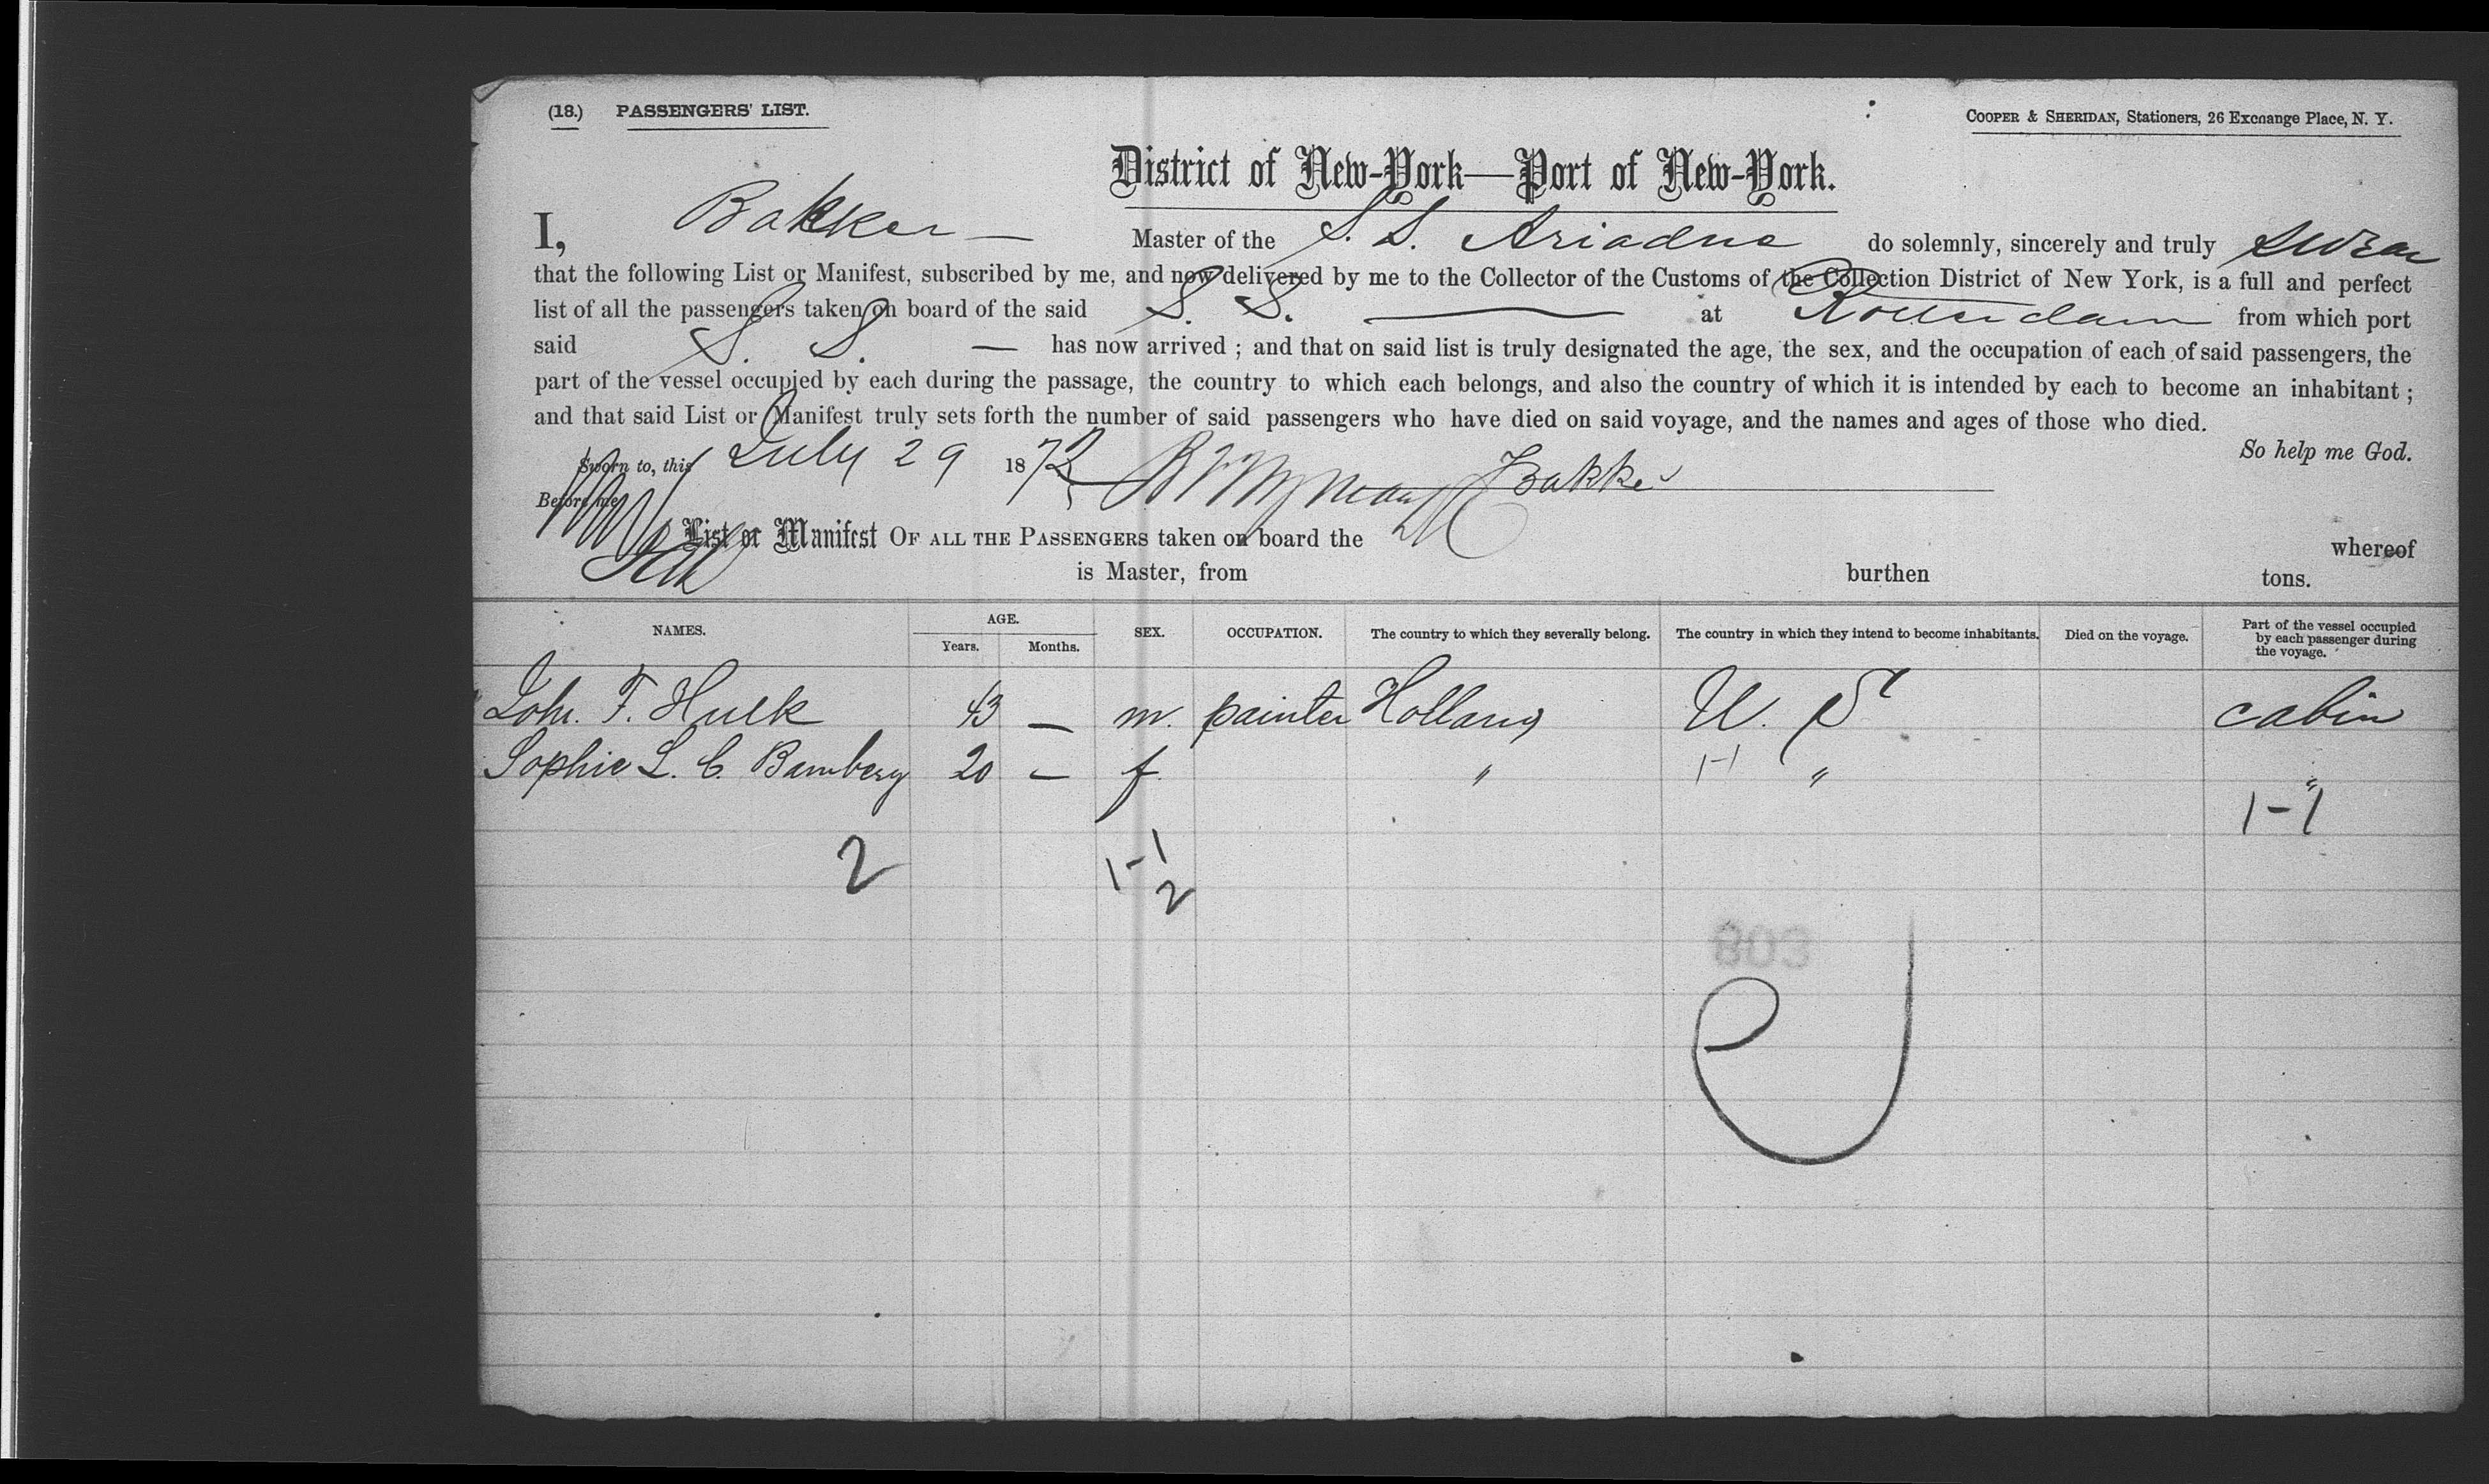 (18.) PASSENGERS' LIST. COOPER & SHERIDAN, Stationers, 26 Exchange Place, N. Y.
District of New-York—Port of New-York.
I, Bakker — Master of the S. S. Ariadne do solemnly, sincerely and truly swear
that the following List or Manifest, subscribed by me, and now delivered by me to the Collector of the Customs of the Collection District of New York, is a full and perfect
list of all the passengers taken on board of the said S. S. — at Rotterdam from which port
said S. S. — has now arrived ; and that on said list is truly designated the age, the sex, and the occupation of each of said passengers, the
part of the vessel occupied by each during the passage, the country to which each belongs, and also the country of which it is intended by each to become an inhabitant ;
and that said List or Manifest truly sets forth the number of said passengers who have died on said voyage, and the names and ages of those who died.
So help me God.
Sworn to, this July 29 187 Bakker
Before me
List or Manifest OF ALL THE PASSENGERS taken on board the whereof
is Master, from burthen tons.
NAMES. AGE. Years. Months. SEX. OCCUPATION. The country to which they severally belong. The country in which they intend to become inhabitants. Died on the voyage. Part of the vessel occupied by each passenger during the voyage.
Joh. F. Hulk 43 — m. painter Holland U. S. cabin
Sophie L. C. Bamberg 20 — f. " 1-1 " "
1-1
2 1-1
2
803